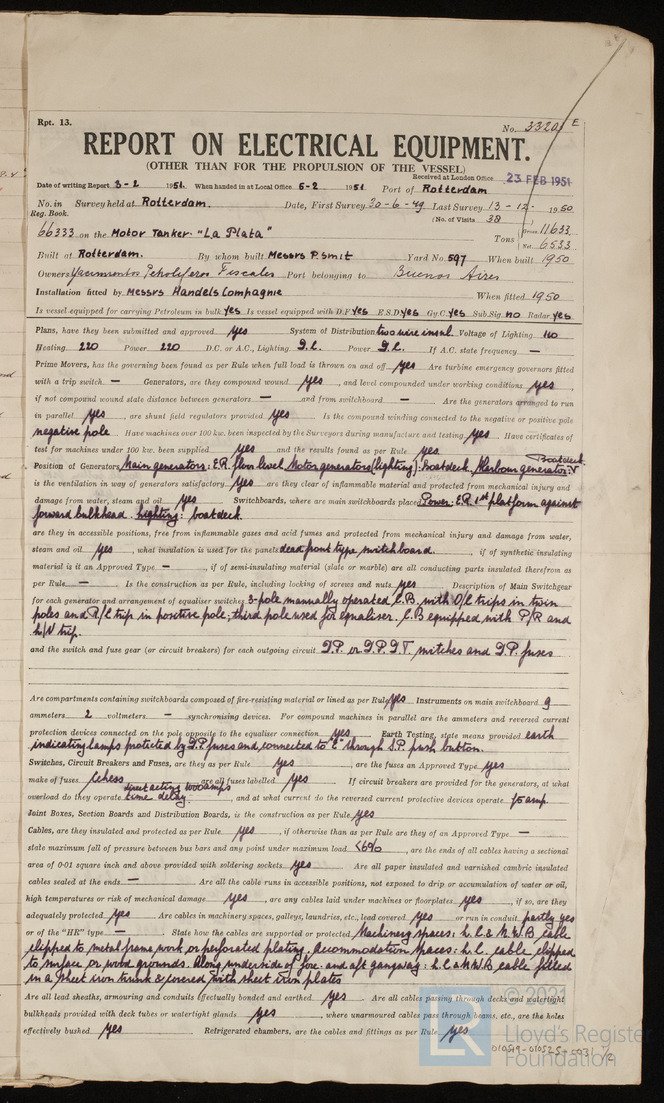 Rpt. 13.
No. 3320 E
REPORT ON ELECTRICAL EQUIPMENT.
(OTHER THAN FOR THE PROPULSION OF THE VESSEL)
Received at London Office 23 FEB 1951
Date of writing Report 3-2 1951 When handed in at Local Office 5-2 1951 Port of Rotterdam
No. in Survey held at Rotterdam. Date, First Survey 30-6-49 Last Survey 13-12- 1950
Reg. Book. (No. of Visits 38
66333 on the Motor Tanker "La Plata" Tons Gross 11633
Net 6533
Built at Rotterdam. By whom built Messrs P. Smit Yard No. 597 When built 1950
Owners Yacimientos Petroliferos Fiscales Port belonging to Buenos Aires
Installation fitted by Messrs Handels Compagnie When fitted 1950
Is vessel equipped for carrying Petroleum in bulk yes Is vessel equipped with D.F. yes E.S.D. yes Gy.C. yes Sub.Sig. no Radar yes
Plans, have they been submitted and approved yes System of Distribution two wire insul. Voltage of Lighting 110
Heating 220 Power 220 D.C. or A.C., Lighting D.C. Power D.C. If A.C. state frequency —
Prime Movers, has the governing been found as per Rule when full load is thrown on and off yes Are turbine emergency governors fitted
with a trip switch — Generators, are they compound wound yes, and level compounded under working conditions yes,
if not compound wound state distance between generators — and from switchboard — Are the generators arranged to run
in parallel yes, are shunt field regulators provided yes Is the compound winding connected to the negative or positive pole
negative pole Have machines over 100 kw. been inspected by the Surveyors during manufacture and testing yes Have certificates of
test for machines under 100 kw. been supplied yes and the results found as per Rule yes
Position of Generators Main generators: E.R. floor level Motor generators (lighting): boatdeck. Harbour generator: Boatdeck
is the ventilation in way of generators satisfactory yes are they clear of inflammable material and protected from mechanical injury and
damage from water, steam and oil yes Switchboards, where are main switchboards placed Power: E.R. 1st platform against
forward bulkhead. lighting: boatdeck.
are they in accessible positions, free from inflammable gases and acid fumes and protected from mechanical injury and damage from water,
steam and oil yes, what insulation is used for the panels dead front type switchboard., if of synthetic insulating
material is it an Approved Type —, if of semi-insulating material (slate or marble) are all conducting parts insulated therefrom as
per Rule — Is the construction as per Rule, including locking of screws and nuts yes Description of Main Switchgear
for each generator and arrangement of equaliser switches 3-pole manually operated C.B. with O/L trips in twin
poles and R/C trip in positive pole; third pole used for equaliser. C.B equipped with P/R and
L/V trip.
and the switch and fuse gear (or circuit breakers) for each outgoing circuit D.P. or D.P.D.T. switches and D.P. fuses
Are compartments containing switchboards composed of fire-resisting material or lined as per Rule yes Instruments on main switchboard 9
ammeters 2 voltmeters — synchronising devices. For compound machines in parallel are the ammeters and reversed current
protection devices connected on the pole opposite to the equaliser connection yes Earth Testing, state means provided earth
indicating lamps protected by D.P fuses and connected to "E" through S.P. push button.
Switches, Circuit Breakers and Fuses, are they as per Rule yes, are the fuses an Approved Type yes
make of fuses are all fuses labelled yes If circuit breakers are provided for the generators, at what
overload do they operate direct acting amps
time delay, and at what current do the reversed current protective devices operate 15 amp
Joint Boxes, Section Boards and Distribution Boards, is the construction as per Rule yes
Cables, are they insulated and protected as per Rule yes, if otherwise than as per Rule are they of an Approved Type —
state maximum fall of pressure between bus bars and any point under maximum load <6%, are the ends of all cables having a sectional
area of 0·01 square inch and above provided with soldering sockets yes Are all paper insulated and varnished cambric insulated
cables sealed at the ends — Are all the cable runs in accessible positions, not exposed to drip or accumulation of water or oil,
high temperatures or risk of mechanical damage yes, are any cables laid under machines or floorplates yes, if so, are they
adequately protected yes Are cables in machinery spaces, galleys, laundries, etc., lead covered yes or run in conduit partly yes
or of the "HR" type — State how the cables are supported or protected Machinery spaces: L.C. & M.W.B cable
clipped to metal frame work or perforated plating. Accommodation spaces: L.C. cable clipped
to surface or wood grounds. Along underside of fore and aft gangway: L.C & M.W.B cable fitted
in a sheet iron trunk & covered with sheet iron plates
Are all lead sheaths, armouring and conduits effectually bonded and earthed yes Are all cables passing through decks and watertight
bulkheads provided with deck tubes or watertight glands yes, where unarmoured cables pass through beams, etc., are the holes
effectively bushed yes Refrigerated chambers, are the cables and fittings as per Rule yes
© 2021
Lloyd's Register
Foundation
010519-010525-0031 1/2